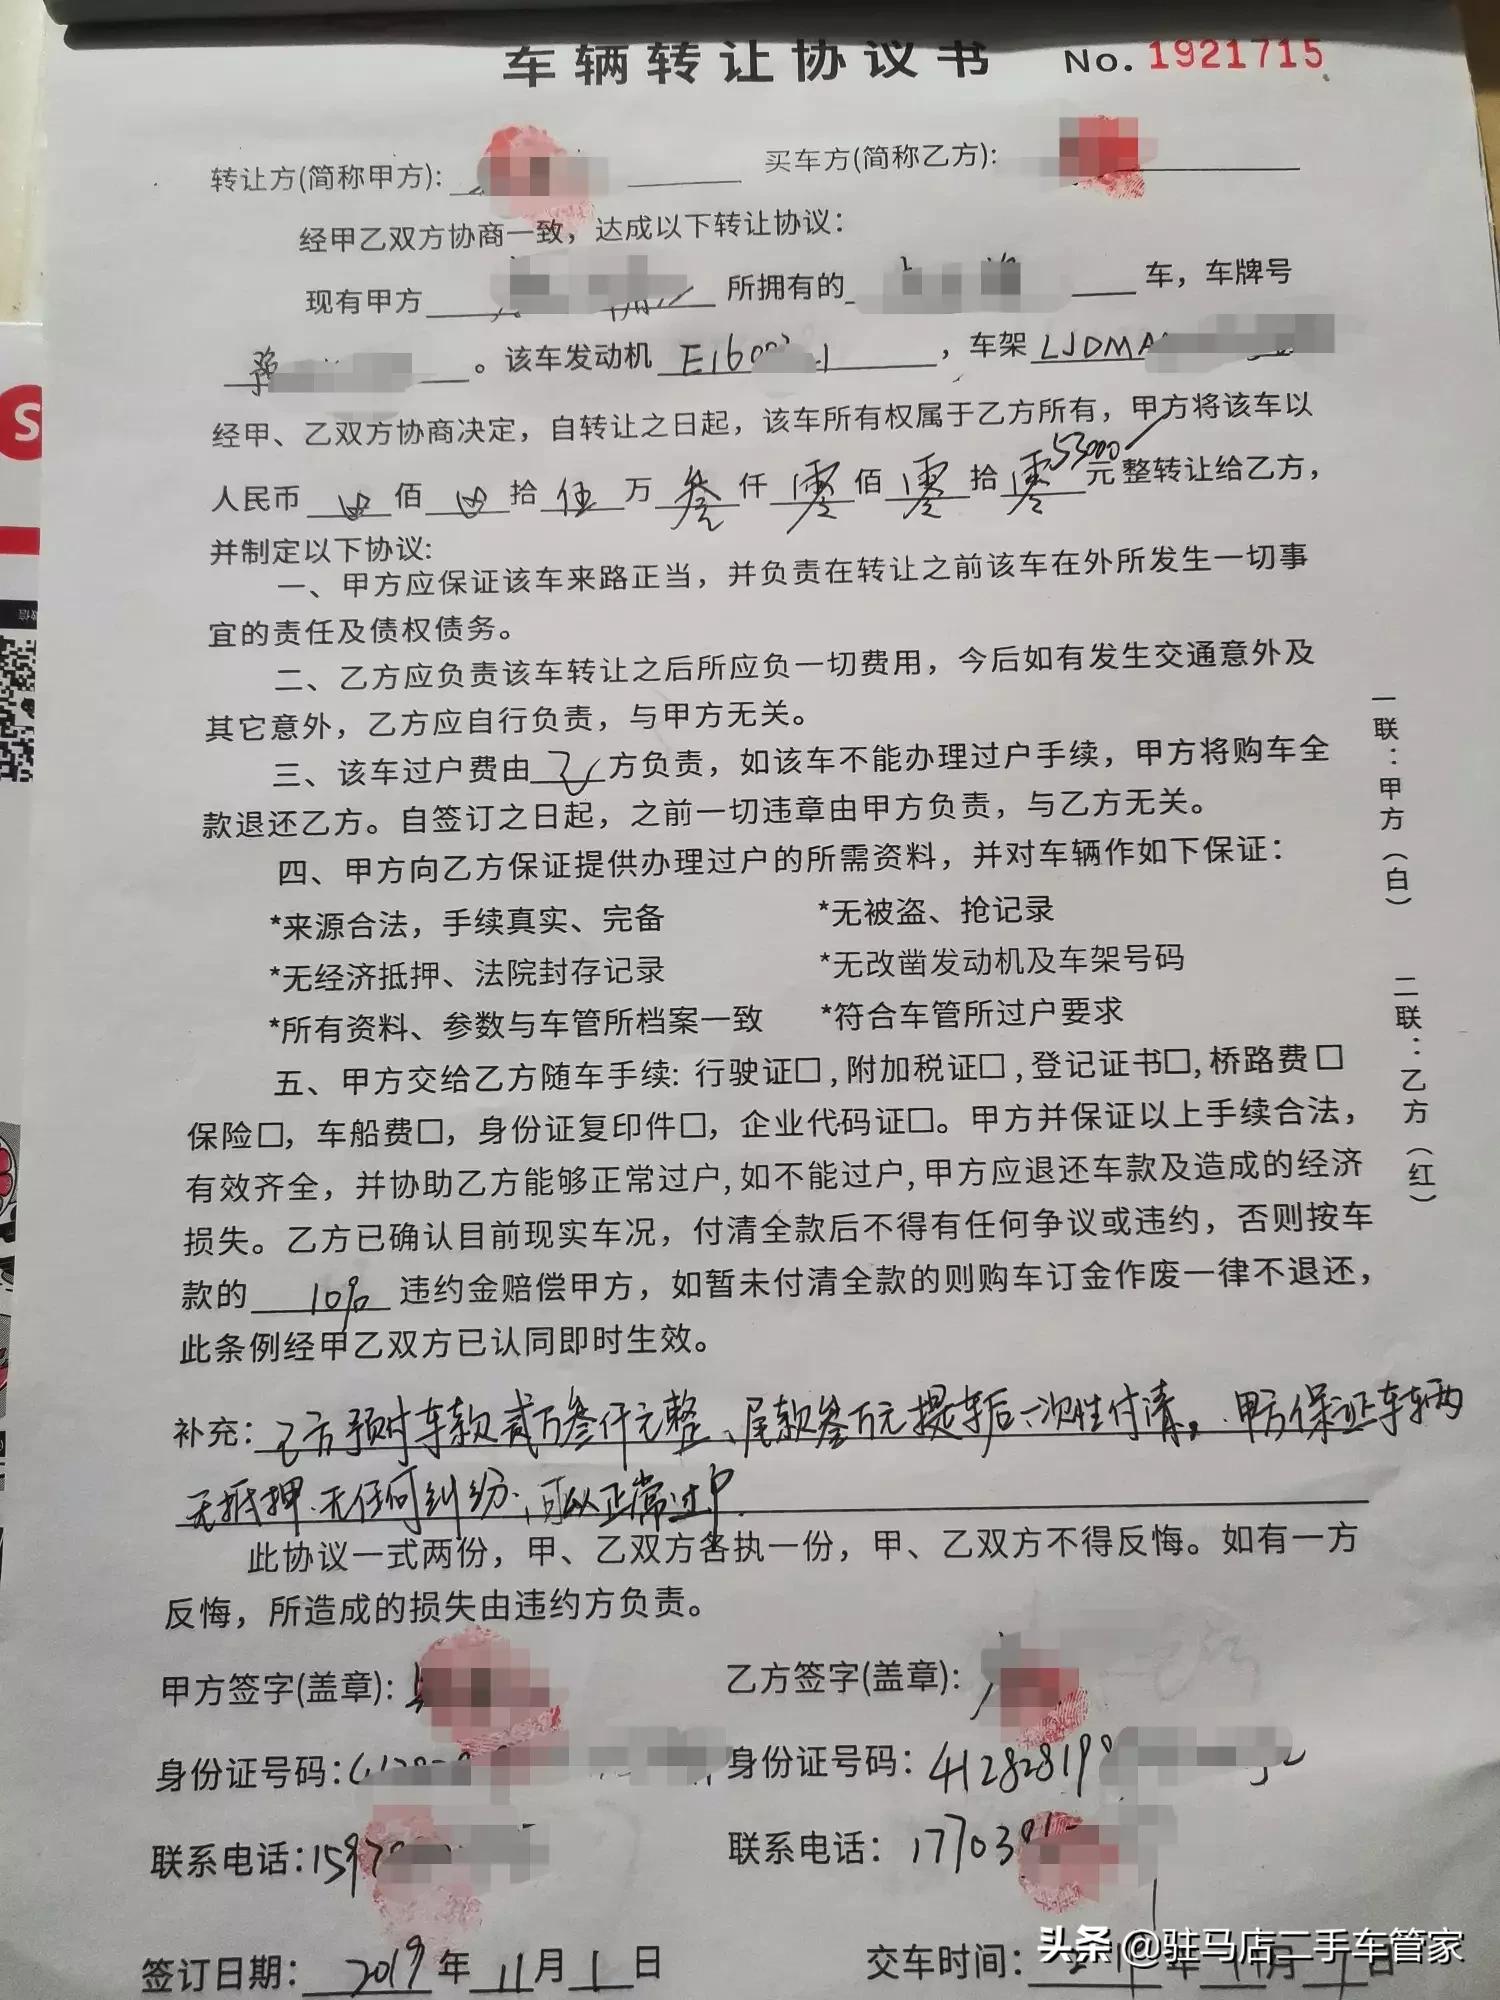 车辆转让协议书 No.1921715
转让方(简称甲方): 买车方(简称乙方):
经甲乙双方协商一致，达成以下转让协议：
现有甲方 所拥有的 车，车牌号
豫 。该车发动机 E1600 1 ，车架 LJDMA
经甲、乙双方协商决定，自转让之日起，该车所有权属于乙方所有，甲方将该车以
53000
人民币 佰 拾 伍 万 叁 仟 零 佰 零 拾 零 元整转让给乙方，
并制定以下协议:
一、甲方应保证该车来路正当，并负责在转让之前该车在外所发生一切事
宜的责任及债权债务。
二、乙方应负责该车转让之后所应负一切费用，今后如有发生交通意外及
其它意外，乙方应自行负责，与甲方无关。
三、该车过户费由 乙 方负责，如该车不能办理过户手续，甲方将购车全
款退还乙方。自签订之日起，之前一切违章由甲方负责，与乙方无关。
四、甲方向乙方保证提供办理过户的所需资料，并对车辆作如下保证：
*来源合法，手续真实、完备 *无被盗、抢记录
*无经济抵押、法院封存记录 *无改凿发动机及车架号码
*所有资料、参数与车管所档案一致 *符合车管所过户要求
五、甲方交给乙方随车手续: 行驶证□,附加税证□,登记证书□,桥路费□
保险□，车船费□，身份证复印件□，企业代码证□。甲方并保证以上手续合法，
有效齐全，并协助乙方能够正常过户,如不能过户,甲方应退还车款及造成的经济
损失。乙方已确认目前现实车况，付清全款后不得有任何争议或违约，否则按车
款的 10% 违约金赔偿甲方，如暂未付清全款的则购车订金作废一律不退还，
此条例经甲乙双方已认同即时生效。
补充: 乙方预付车款贰万叁仟元整、尾款叁万元提车后一次性付清，甲方保证车辆
无抵押、无任何纠纷、可以正常过户.
此协议一式两份，甲、乙双方各执一份，甲、乙双方不得反悔。如有一方
反悔，所造成的损失由违约方负责。
甲方签字(盖章): 乙方签字(盖章):
身份证号码: 身份证号码: 41282819
联系电话:1597 联系电话: 17703
签订日期: 2019 年 11 月 1 日 交车时间: 年 11 月 1 日
一联：甲方（白） 二联：乙方（红）
头条 @驻马店二手车管家